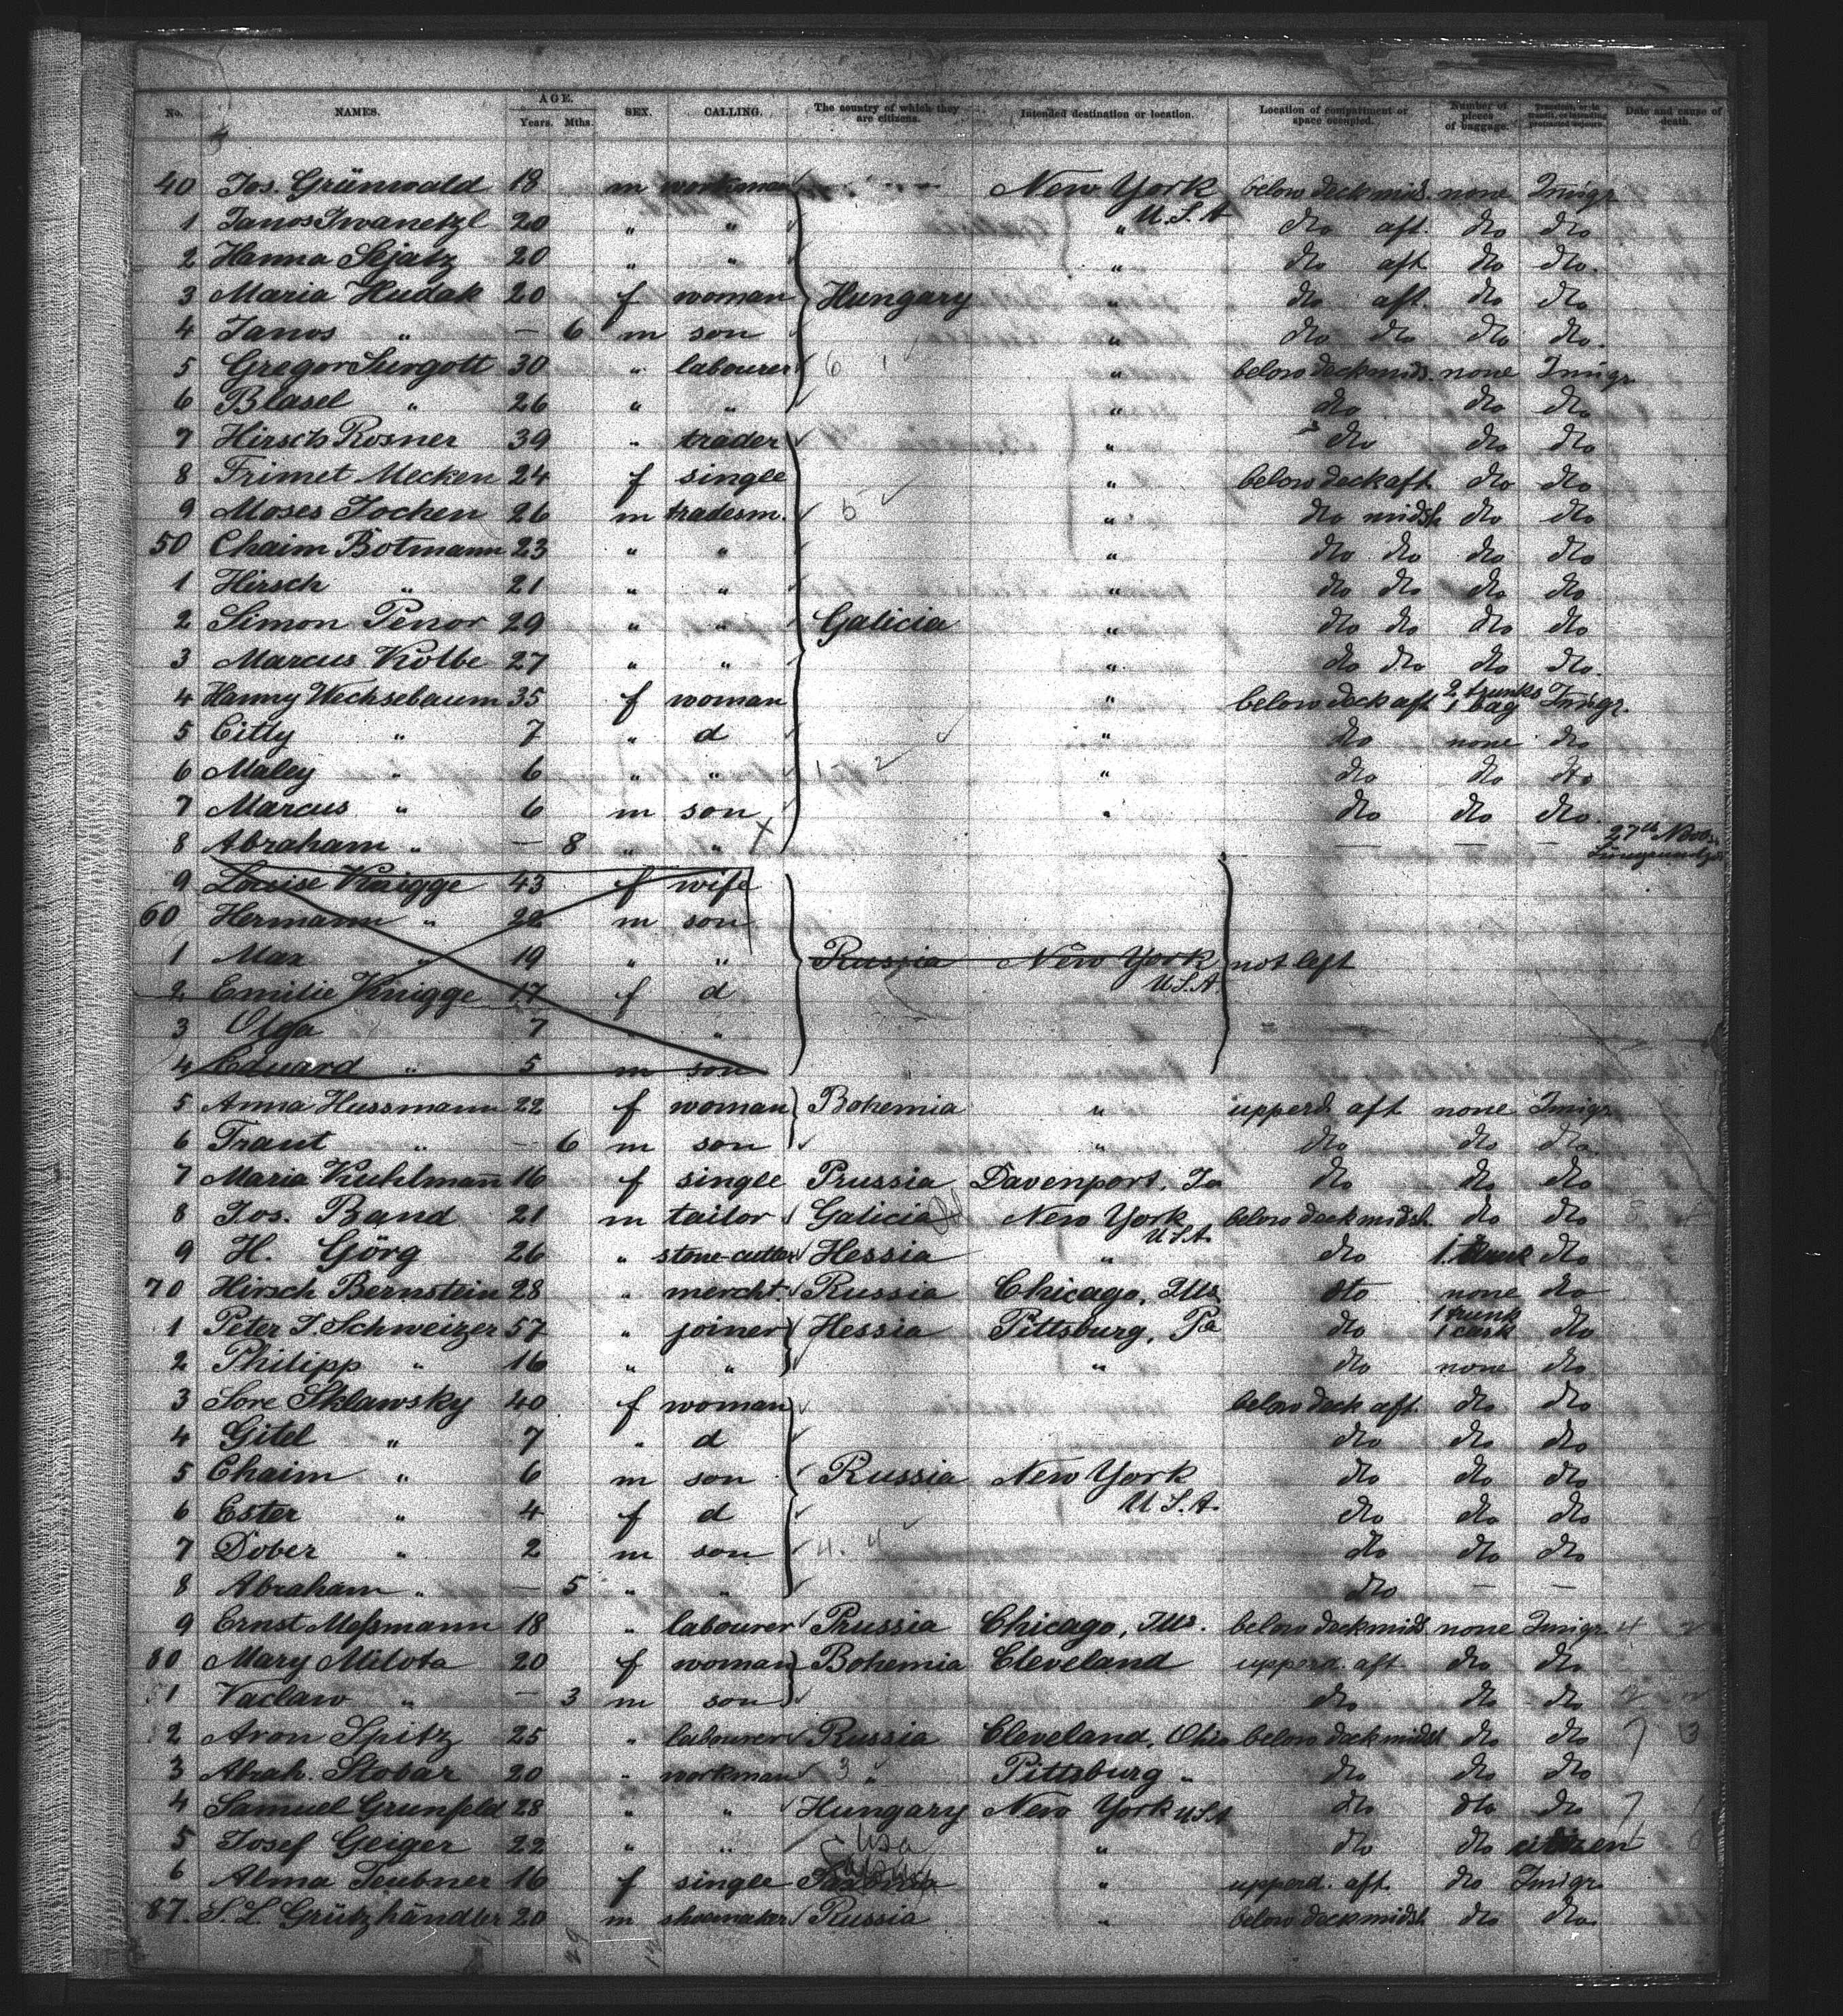 No. NAMES. AGE. Years. Mths. SEX. CALLING. The country of which they are citizens. Intended destination or location. Location of compartment or space occupied. Number of pieces of baggage. Date and cause of death.
40 Jos. Grünwald 18 m workman New York U.S.A below deck mids. none Imigr.
1 Janos Iwanetzl 20 " " " dto aft. dto dto
2 Hanna Sejatz 20 " " " dto aft dto dto.
3 Maria Hudak 20 f woman Hungary " dto aft. dto dto
4 Janos " — 6 m son " dto dto dto dto.
5 Gregor Surgott 30 " labourer 6 1 " below deck mids. none Imigr.
6 Blasel " 26 " " " dto dto dto
7 Hirsch Rosner 39 " trader " dto dto dto
8 Frimet Mecken 24 f single " below deck aft dto dto
9 Moses Jocken 26 m tradesm. 5 " dto midsh. dto dto
50 Chaim Botmann 23 " " " dto dto dto dto
1 Hirsch " 21 " " " dto dto dto dto
2 Simon Penor 29 " " Galicia " dto dto dto dto
3 Marcus Kolbe 27 " " " dto dto dto dto.
4 Hanny Wechsebaum 35 f woman " below deck aft 2 trunks 1 bag Imigr.
5 Citty " 7 " d " dto none dto
6 Maley " 6 " " 1 2 " dto dto dto
7 Marcus " 6 m son " dto dto dto.
8 Abraham " — 8 " " — — — 27th Novb.
9 Louise Knigge 43 f wife
60 Hermann " 22 m son
1 Max " 19 " " Russia New York U.S.A. not left
2 Emilie Knigge 17 f d
3 Olga 7 " "
4 Eduard " 5 m son
5 Anna Hussmann 22 f woman Bohemia " upperd. aft none Imigr.
6 Traut " — 6 m son " dto dto dto
7 Maria Kuhlmann 16 f single Prussia Davenport, Ia dto dto dto
8 Jos. Band 21 m tailor Galicia New York U.S.A. below deck midsh. dto dto
9 H. Görg 26 " stone-cutter Hessia " dto 1 trunk dto
70 Hirsch Bernstein 28 " mercht. Russia Chicago, Ills dto none dto
1 Peter J. Schweizer 57 " joiner Hessia Pittsburg, Pa dto 1 trunk 1 cask dto
2 Philipp " 16 " " " dto none dto
3 Sore Sklawsky 40 f woman below deck aft. dto dto
4 Gitel " 7 " d dto dto dto
5 Chaim " 6 m son Russia New York U.S.A. dto dto dto
6 Ester " 4 f d dto dto dto
7 Dober " 2 m son 4. 4 dto dto dto
8 Abraham " — 5 " " dto — —
9 Ernst Moßmann 18 " labourer Prussia Chicago, Ills. below deck mids. none Imigr. 4 2
80 Mary Milota 20 f woman Bohemia Cleveland upperd. aft. dto dto
81 Vaclaw " — 3 m son dto dto dto
82 Aron Spitz 25 " labourer Russia Cleveland, Ohio below deck midsh dto dto 7 3
3 Abrah. Stobar 20 " workman 3 " Pittsburg " dto dto dto
4 Samuel Grunfeld 28 " " Hungary New York U.S.A dto dto dto 7 1
5 Josef Geiger 22 " " Usa " dto dto citizen
6 Alma Teubner 16 f single " upperd. aft. dto Imigr.
87. S. L. Grützhändler 20 m shoemaker Russia " below deck midsh. dto dto.
29 12